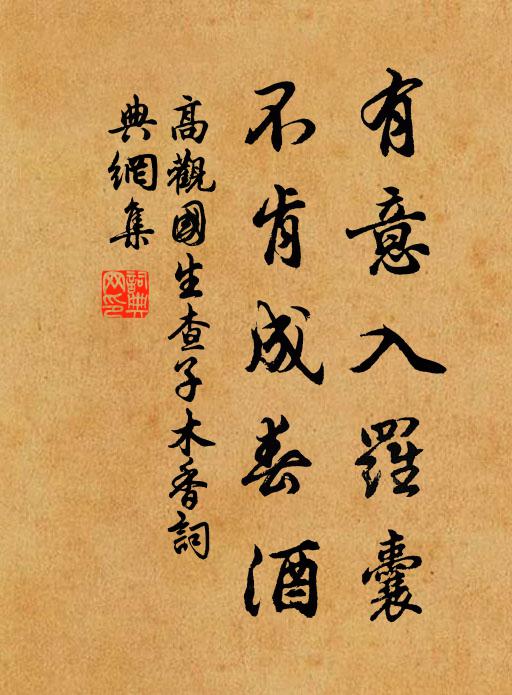 有意入羅囊
不肯成春酒
高觀國生查子木香詞
典網集
詞典网印